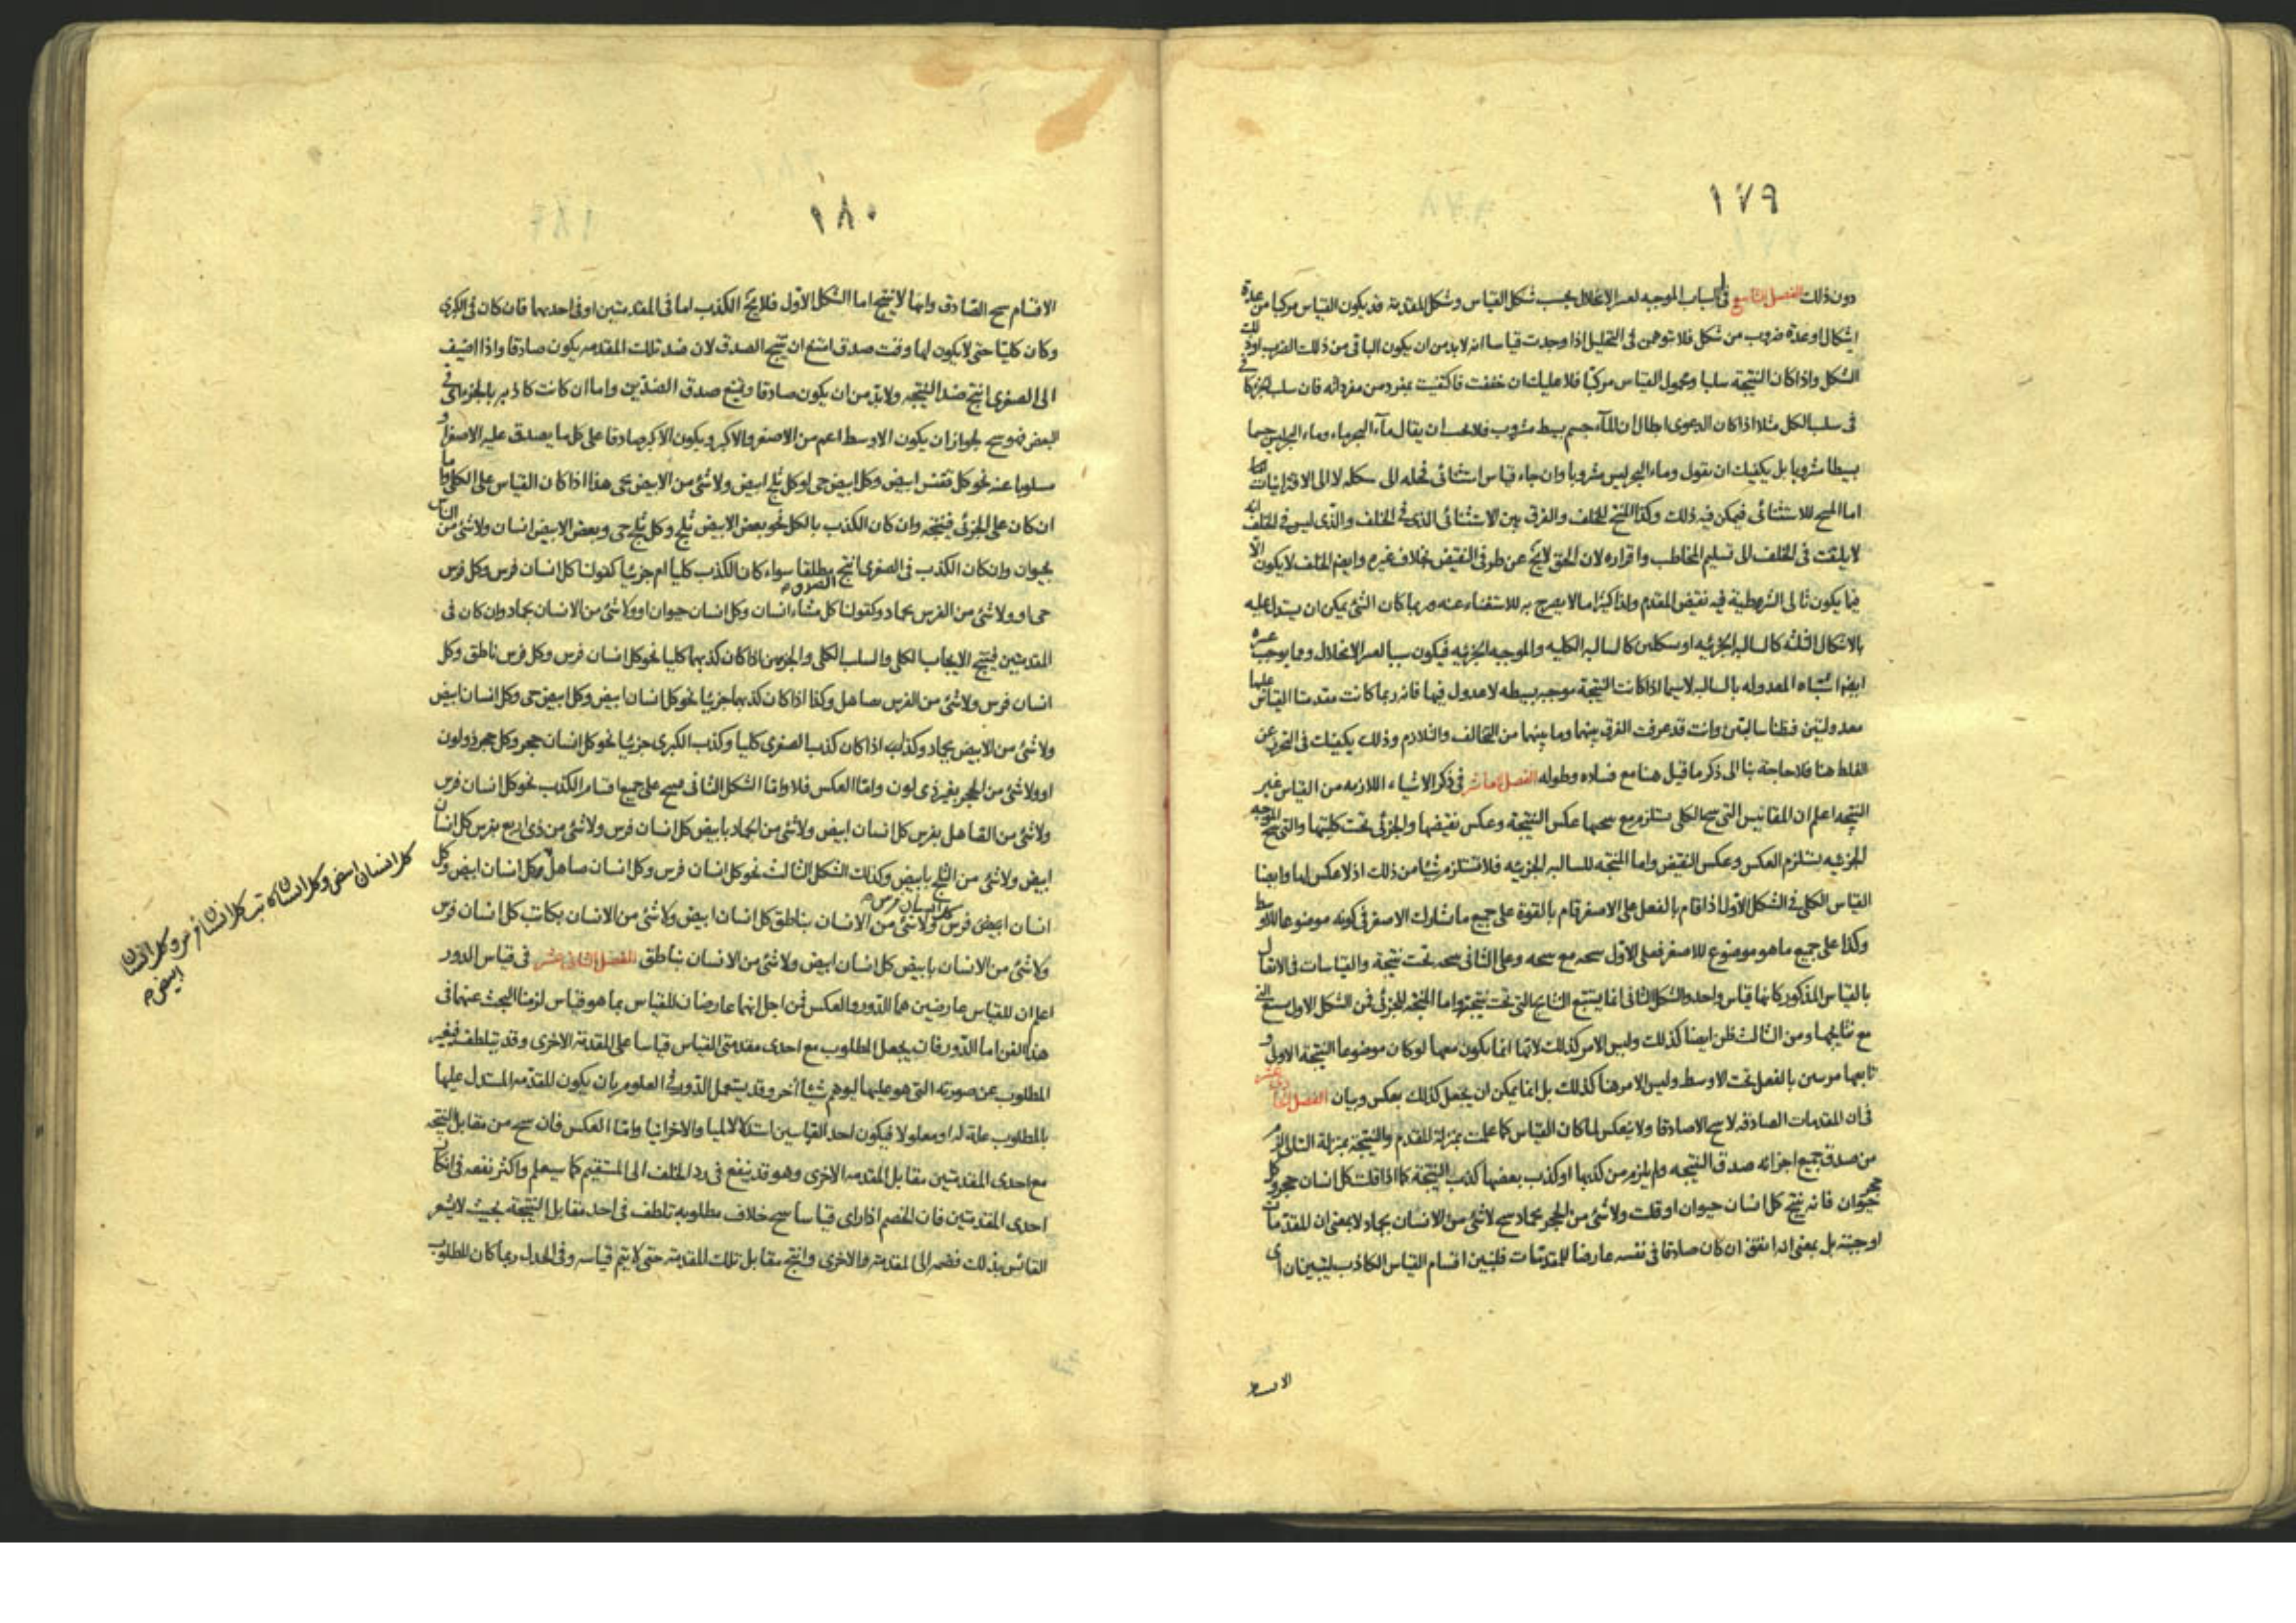 ١٧٩
دون ذلك الفصل التاسع فى اسباب الموجبه لعسر الانحلال بحسب شكل القياس وشكل المقدمة قد يكون القياس مركبا من عدة
اشكال او عدة ضروب من شكل فلا توهمن فى التحليل اذا وجدت قياسا انه لابد من ان يكون الباقى من ذلك الضرب او ذلك
الشكل واذا كان النتيجة سلبا ومحمول القياس مركبا فلا عليك ان خففت فاكتفيت بمفرد من مفرداته فان سلب
فى سلب الكل مثلا اذا كان الدعوى ابطال ان المآء جسم بسيط مشروب فلا يجب ان يقال مآء البحر ماء وماء البحر ليس جسما
بسيطا مشروبا بل يكفيك ان يقول وماء البحر ليس مشروبا وان جاء قياس استثنائى فحله الى شكله لا الى الاقترانيات
اما المنتج للاستثنائى فيمكن فيه ذلك وكذا المنتج للخلف والفرق بين الاستثنائى الذى فى الخلف والذى ليس فى الخلف انه
لا يلتفت فى الخلف الى تسليم المخاطب واقراره لان الحق لا يخ عن طرفى النقيض بخلاف غيره وايضم الخلف لا يكون الا
فيما يكون تالى الشرطية فيه نقيض المقدم ولذا كثيرا ما لا يصرح به للاستغناء عنه وربما كان الشئ يمكن ان يستدل عليه
بالاشكال الثلثة كالسالبه الجزئيه او بشكلين كالسالبه الكليه والموجبه الجزئيه فيكون سببا لعسر الانحلال ومما يوجب عسره
ايضم اشتباه المعدوله بالسالبه لاسيما اذا كانت النتيجة موجبه بسيطه لا عدول فيها فانه ربما كانت مقدمتا القياس عليها
معدولتين فظنتا سالبتين وانت قد عرفت الفرق بينهما وما بينهما من التخالف والتلازم وذلك يكفيك فى التحرز عن
الغلط هنا فلا حاجة بنا الى ذكر ما قيل هنا مع فساده وطوله الفصل العاشر فى ذكر الاشياء اللازمه من القياس غير
النتيجه اعلم ان المقائيس التى تنتج الكلى يستلزم مع نتيجتها عكس النتيجة وعكس نقيضها والجزئى تحت كليتها والتى تنتج الموجبه
الجزئيه يستلزم العكس وعكس النقيض واما المنتجه للسالبه الجزئيه فلا تستلزم شيئا من ذلك اذ لا عكس لها وايضا
القياس الكلى فى الشكل الاول اذا قام بالفعل على الاصغر قام بالقوة على جميع ما شارك الاصغر فى كونه موضوعا للاوسط
وكذا على جميع ما هو موضوع للاصغر فعلى الاول نتيجه مع نتيجه وعلى الثانى نتيجه تحت نتيجة والقياسات فى الاتصال
بالقياس المذكور كانها قياس واحد والشكل الثانى انما يستتبع النتايج التى تحت نتيجتها واما المنتجه للجزئى فمن الشكل الاول يستتبع التى
مع نتايجها ومن الثالث ظن ايضا كذلك وليس الامر كذلك لانها انما يكون معها لو كان موضوعا النتيجة الاولى و
تابعها مرسين بالفعل تحت الاوسط وليس الامر هنا كذلك بل انما يمكن ان يجعل كذلك بعكس وبيان الفصل الحادى عشر
فى ان المقدمات الصادقه لا تنتج الا صادقا ولا ينعكس لما كان القياس كما علمت بمنزلة المقدم والنتيجة بمنزلة التالى
من صدق جميع اجزائه صدق النتيجه ولم يلزم من كذبها او كذب بعضها كذب النتيجة كما اذا قلت كل انسان حجر وكل حجر
حيوان فانه ينتج كل انسان حيوان او قلت ولا شئ من الحجر بجماد ينتج لا شئ من الانسان بجماد لا بمعنى ان المقدمات
اوجبته بل بمعنى انه اتفق ان كان صادقا فى نفسه عارضا للمقدمات فلنبين اقسام القياس الكاذب ليتبين ان اى
الاقسام
١٨٠
الاقسام ينتج الصادق وايها لا ينتج اما الشكل الاول فلا يخ الكذب اما فى المقدمتين او فى احديهما فان كان فى الكبرى
وكان كليا حتى لا يكون لها وقت صدق امتنع ان ينتج الصدق لان ضد تلك المقدمه يكون صادقا واذا اضيف
الى الصغرى انتج ضد النتيجه ولابد من ان يكون صادقا ويمتنع صدق الضدين واما ان كانت كاذبه بالجزء اى فى
البعض فهو ينتج لجواز ان يكون الاوسط اعم من الاصغر والاكبر ويكون الاكبر صادقا على كل ما يصدق عليه الاصغر او
مسلوبا عنه نحو كل ققنس ابيض وكل ابيض حى او كل ثلج ابيض ولا شئ من الابيض بحى هذا اذا كان القياس على الكلى واما
ان كان على الجزئى فينتجه وان كان الكذب بالكل نحو بعض الابيض ثلج وكل ثلج حى وبعض الابيض انسان ولا شئ من الناس
بحيوان وان كان الكذب فى الصغرى انتج مطلقا سواء كان الكذب كليا ام جزئيا كقولنا كل انسان فرس وكل فرس
حى او ولا شئ من الفرس بجماد وكقولنا كل مشاء انسان وكل انسان حيوان او ولا شئ من الانسان بجماد وان كان فى
المقدمتين فينتج الايجاب الكلى والسلب الكلى والجزءين اذا كان كذبهما كليا نحو كل انسان فرس وكل فرس ناطق وكل
انسان فرس ولا شئ من الفرس بصاهل وكذا اذا كان كذبهما جزئيا نحو كل انسان ابيض وكل ابيض حى وكل انسان ابيض
ولا شئ من الابيض بجماد وكذلك اذا كان كذب الصغرى كليا وكذب الكبرى جزئيا نحو كل انسان حجر وكل حجر ذو لون
او ولا شئ من الحجر بغير ذى لون واما العكس فلا واما الشكل الثانى فينتج على جميع اقسام الكذب نحو كل انسان فرس
ولا شئ من الصاهل بفرس كل انسان ابيض ولا شئ من الجماد بابيض كل انسان فرس ولا شئ من ذى اربع بفرس كل انسان
ابيض ولا شئ من الثلج بابيض وكذلك الشكل الثالث نحو كل انسان فرس وكل انسان صاهل وكل انسان ابيض وكل
انسان ابيض فرس كل انسان فرس ولا شئ من الانسان بناطق كل انسان ابيض ولا شئ من الانسان بكاتب كل انسان فرس
ولا شئ من الانسان بابيض كل انسان ابيض ولا شئ من الانسان بناطق الفصل الثانى عشر فى قياس الدور
اعلم ان للقياس عارضين هما الدور والعكس فمن اجل انهما عارضان للقياس بما هو قياس لزمنا البحث عنهما فى
هذا الفن اما الدور فان يجعل المطلوب مع احدى مقدمتى القياس قياسا على المقدمة الاخرى وقد يتلطف فيغير
المطلوب عن صورته التى هو عليها ليوهم شيئا آخر وقد يستعمل الدور فى العلوم بان يكون المقدمه المستدل عليها
بالمطلوب علة له او معلولا فيكون احد القياسين استدلالا لميا والاخر انيا واما العكس فان ينتج من مقابل النتيجه
مع احدى المقدمتين مقابل المقدمه الاخرى وهو قد ينفع فى رد الخلف الى المستقيم كما سيعلم واكثر نفعه فى انكار
احدى المقدمتين فان الخصم اذا راى قياسا ينتج خلاف مطلوبه تلطف فى اخذ مقابل النتيجة بحيث لا يشعر
القائس بذلك فضمه الى المقدمة الاخرى وانتج مقابل تلك المقدمة حتى لا يتم قياسه وفى الجدل ربما كان المطلوب
كل انسان ابيض وكل انسان كاتب كل انسان فرس وكل انسان
ابيض